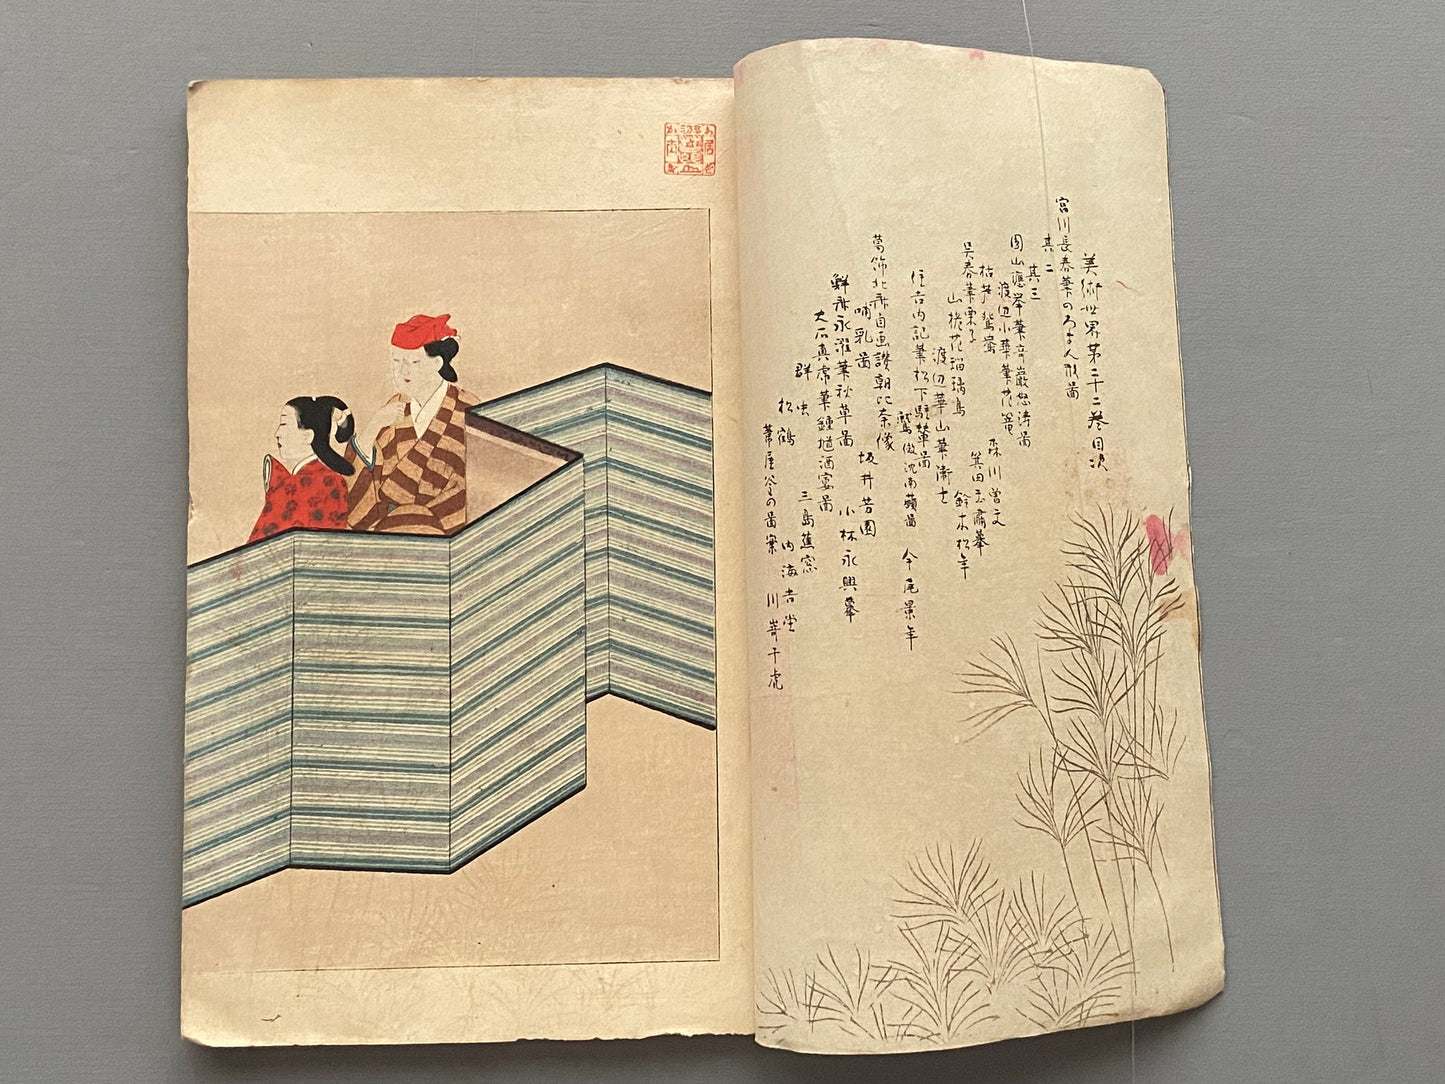 美術世界第二十二巻目次
宮川長春筆のろま人形図
其二
其三
圓山應挙筆奇巌怒涛図 森川曽文
渡辺小華筆花籠
枯木鴛鴦 箕田玉甫摹
呉春筆栗子 鈴木松年
山椒花瑠璃鳥
渡辺華山筆衛士
住吉内記筆松下駐輦図
鷲 倣沈南蘋図 今尾景年
葛飾北斎自画讃朝比奈像
哺乳図 坂井芳園
鮮斎永濯筆秋草図 小林永興摹
大石真虎筆鍾馗酒宴図
群虫 三島蕉窓
松鶴 内海吉堂
葦屋釜の図案 川嵜千虎